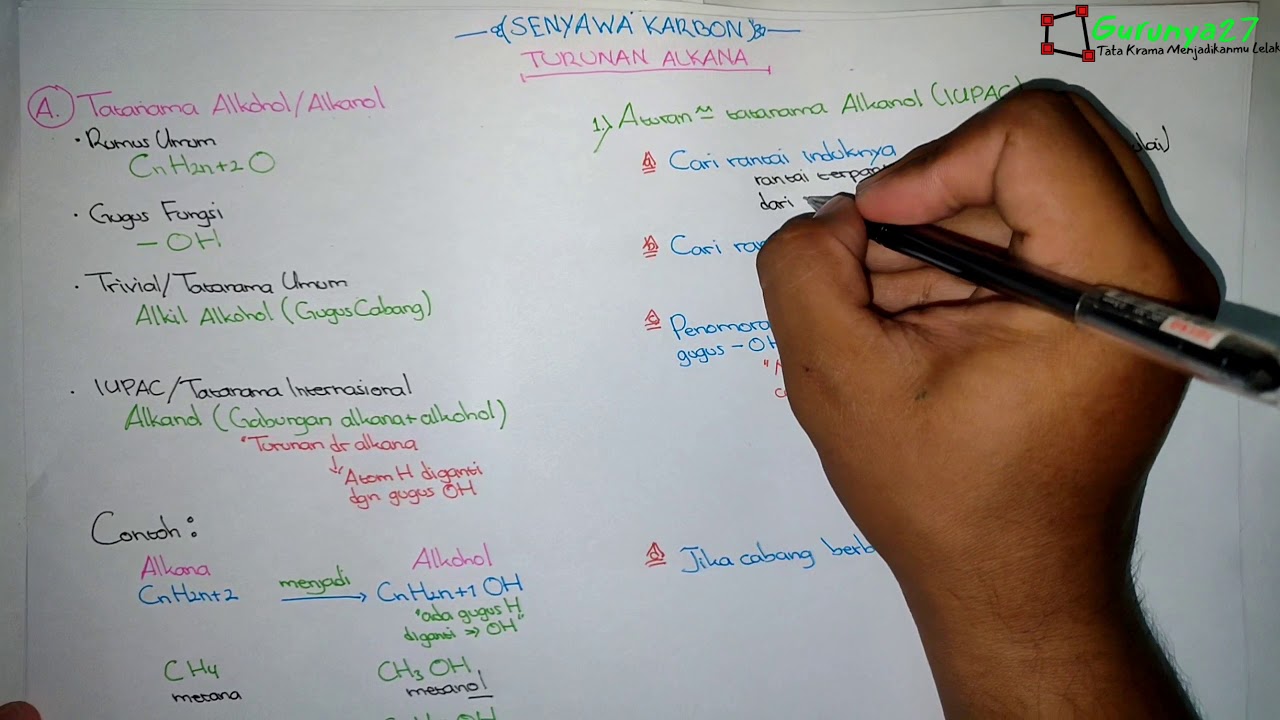 SENYAWA KARBON
TURUNAN ALKANA
Gurunya27
Tata Krama Menjadikanmu Lelak
A. Tatanama Alkohol/Alkanol
• Rumus Umum
CnH2n+2 O
• Gugus Fungsi
– OH
• Trivial/Tatanama Umum
Alkil Alkohol (Gugus Cabang)
• IUPAC/Tatanama Internasional
Alkanol (Gabungan alkana+alkohol)
"Turunan dr alkana
↓
"Atom H diganti
dgn gugus OH
Contoh:
Alkana
Alkohol
CnH2n+2 menjadi → CnH2n+1 OH
"ada gugus H
diganti ⇒ OH"
CH4
CH3 OH
metana
metanol
1.) Aturan² tatanama Alkanol (IUPAC)
a Cari rantai induknya
rantai terpan
dari
b Cari ra
c Penomora
gugus – OH
d Jika cabang berb